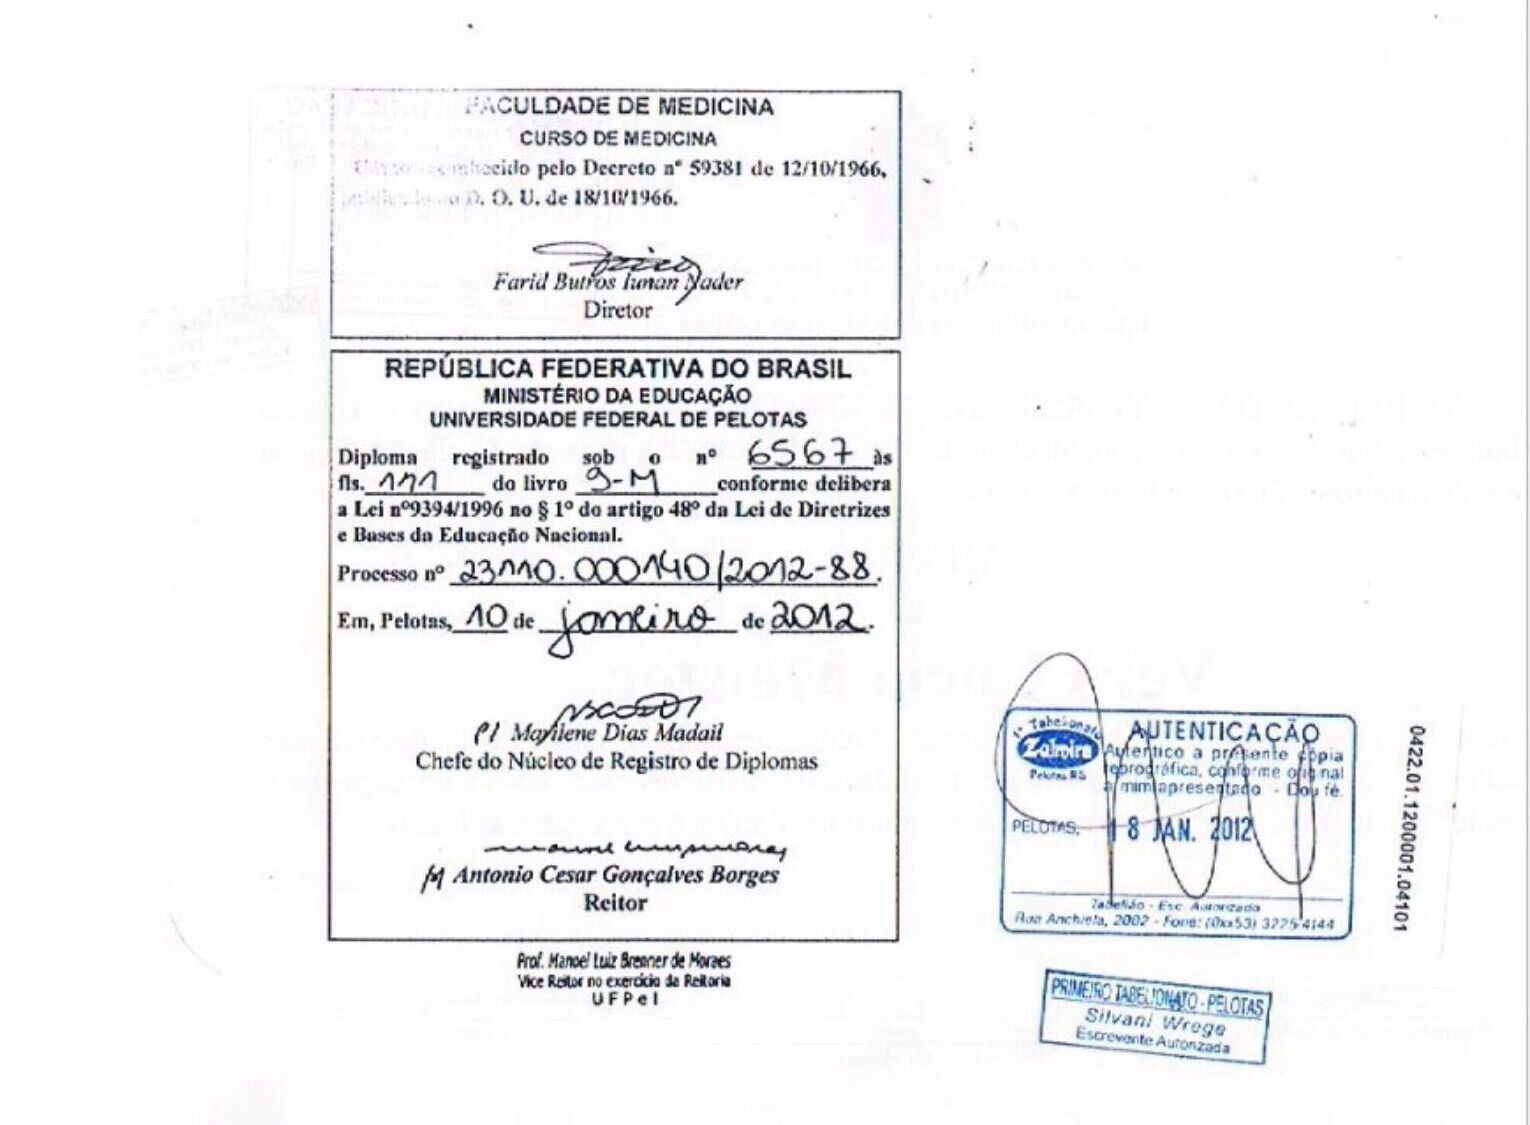 FACULDADE DE MEDICINA
CURSO DE MEDICINA
reconhecido pelo Decreto nº 59381 de 12/10/1966,
publicado no D. O. U. de 18/10/1966.
Farid Butros Iunan Nader
Diretor
REPÚBLICA FEDERATIVA DO BRASIL
MINISTÉRIO DA EDUCAÇÃO
UNIVERSIDADE FEDERAL DE PELOTAS
Diploma registrado sob o nº 6567 às
fls. 111 do livro 9-M conforme delibera
a Lei nº9394/1996 no § 1º do artigo 48º da Lei de Diretrizes
e Bases da Educação Nacional.
Processo nº 23110.000140/2012-88.
Em, Pelotas, 10 de janeiro de 2012.
P/ Marilene Dias Madail
Chefe do Núcleo de Registro de Diplomas
Antonio Cesar Gonçalves Borges
Reitor
Prof. Manoel Luiz Brenner de Moraes
Vice Reitor no exercício da Reitoria
UFPel
1º Tabelionato
Zalmira
Pelotas RS
AUTENTICAÇÃO
Autentico a presente cópia
reprográfica, conforme original
a mim apresentado - Dou fé.
PELOTAS, 18 JAN. 2012
Tabelião - Esc. Autorizado
Rua Anchieta, 2002 - Fone: (0xx53) 3225-4144
0422.01.1200001.04101
PRIMEIRO TABELIONATO - PELOTAS
Silvani Wrege
Escrevente Autorizada